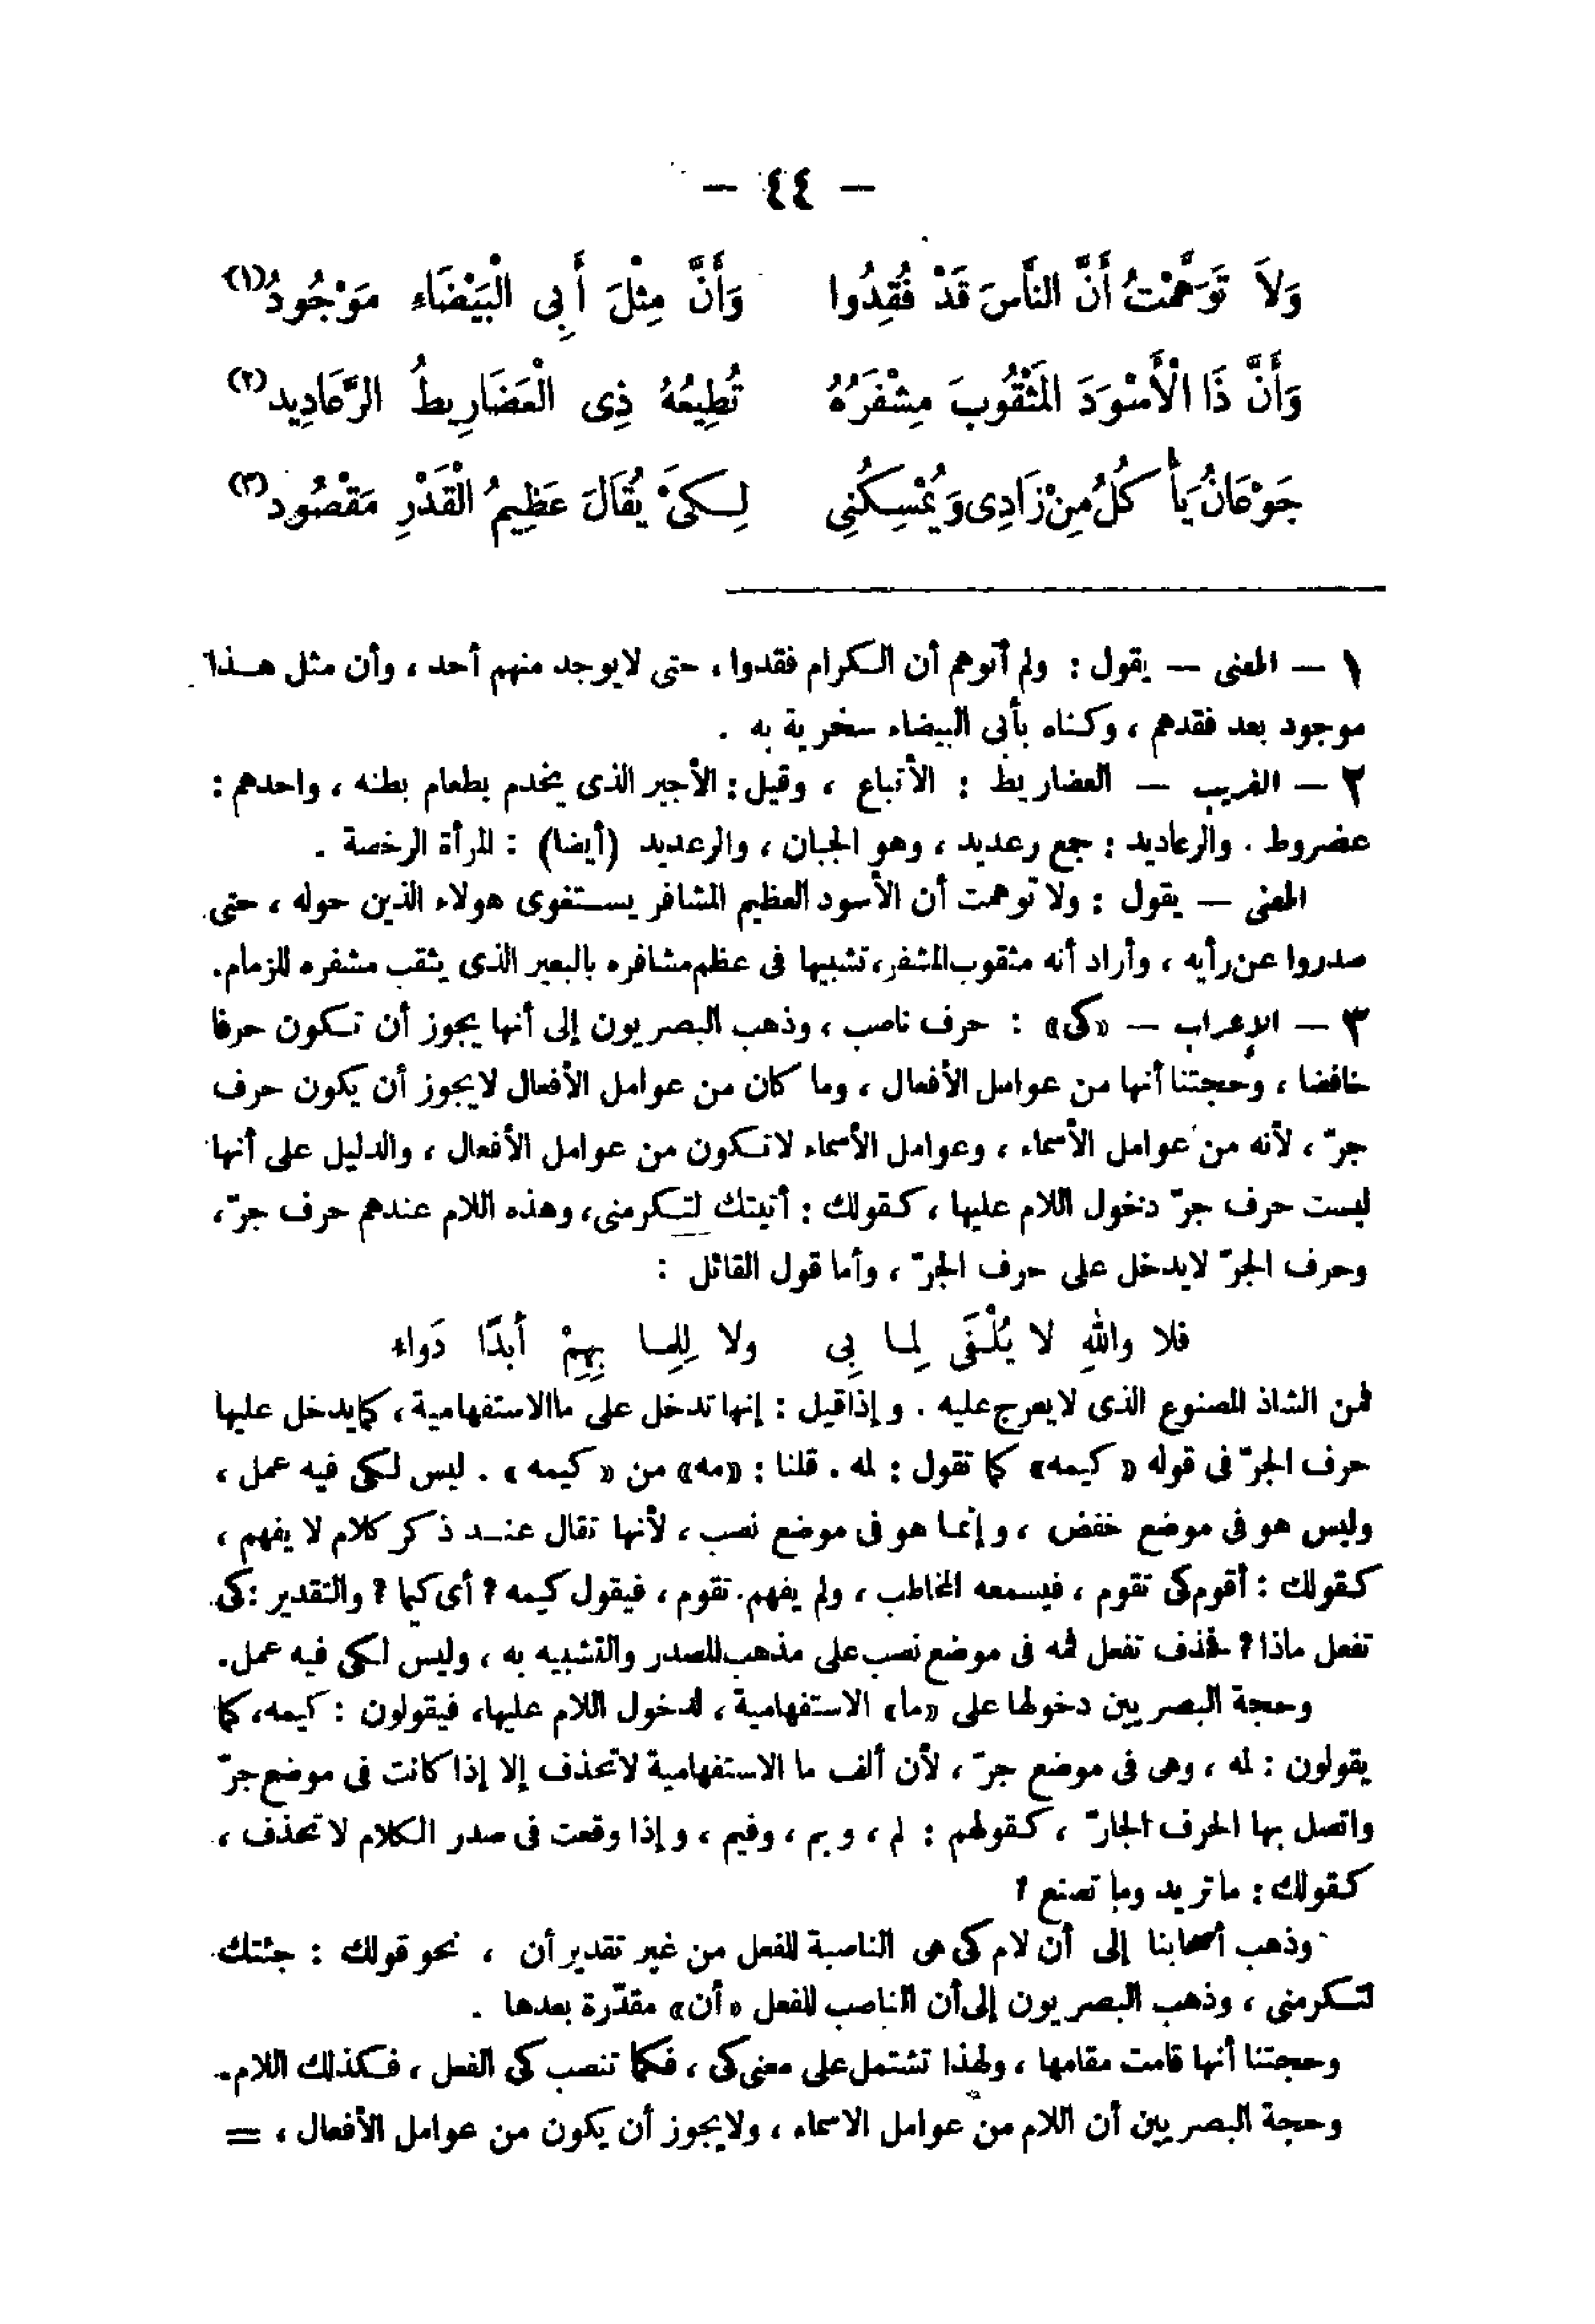 — ٤٤ —
وَلاَ تَوَهَّمْتُ أَنَّ النَّاسَ قَدْ فُقِدُوا وَأَنَّ مِثْلَ أَبِى الْبَيْضَاءِ مَوْجُودُ(١)
وَأَنَّ ذَا الْأَسْوَدَ الْمَثْقُوبَ مِشْفَرُهُ تُطِيعُهُ ذِى الْعَضَارِيطُ الرَّعَادِيد(٢)
جَوْعَانُ يَأْكُلُ مِنْ زَادِى وَيُمْسِكُنِى لِكَىْ يُقَالَ عَظِيمُ الْقَدْرِ مَقْصُود(٣)
١ — المعنى — يقول : ولم أتوهم أن الكرام فقدوا ، حتى لايوجد منهم أحد ، وأن مثل هذا
موجود بعد فقدهم ، وكناه بأبى البيضاء سخرية به .
٢ — الغريب — العضاريط : الأتباع ، وقيل : الأجير الذى يخدم بطعام بطنه ، واحدهم :
عضروط . والرعاديد : جمع رعديد ، وهو الجبان ، والرعديد (أيضا) : المرأة الرخصة .
المعنى — يقول : ولا توهمت أن الأسود العظيم المشافر يستغوى هولاء الذين حوله ، حتى
صدروا عن رأيه ، وأراد أنه مثقوب المشفر، تشبيها فى عظم مشافره بالبعير الذى يثقب مشفره للزمام.
٣ — الإعراب — «كى» : حرف ناصب ، وذهب البصريون إلى أنها يجوز أن تكون حرفا
خافضا ، وحجتنا أنها من عوامل الأفعال ، وما كان من عوامل الأفعال لايجوز أن يكون حرف
جرّ ، لأنه من عوامل الأسماء ، وعوامل الأسماء لاتكون من عوامل الأفعال ، والدليل على أنها
ليست حرف جرّ دخول اللام عليها ، كقولك : أتيتك لتكرمنى، وهذه اللام عندهم حرف جرّ،
وحرف الجرّ لايدخل على حرف الجرّ ، وأما قول القائل :
فلا واللهِ لا يُلْفَى لِما بِى ولا لِلِما بِهِمْ أبدًا دَواء
فمن الشاذ المصنوع الذى لايعرج عليه . وإذا قيل : إنها تدخل على ما الاستفهامية ، كما يدخل عليها
حرف الجرّ فى قوله « كيمه» كما تقول : لمه . قلنا : «مه» من « كيمه » . ليس لكى فيه عمل ،
وليس هو فى موضع خفض ، وإنما هو فى موضع نصب ، لأنها تقال عند ذكر كلام لا يفهم ،
كقولك : أقوم كى تقوم ، فيسمعه المخاطب ، ولم يفهم تقوم ، فيقول كيمه ؟ أى كيما ؟ والتقدير : كى
تفعل ماذا ؟ فحذف تفعل فمه فى موضع نصب على مذهب المصدر والتشبيه به ، وليس لكى فيه عمل.
وحجة البصريين دخولها على «ما» الاستفهامية ، لدخول اللام عليها، فيقولون : كيمه، كما
يقولون : لمه ، وهى فى موضع جرّ ، لأن ألف ما الاستفهامية لاتحذف إلا إذا كانت فى موضع جرّ
واتصل بها الحرف الجارّ ، كقولهم : لم ، وبم ، وفيم ، وإذا وقعت فى صدر الكلام لا تحذف ،
كقولك : ما تريد وما تصنع ؟
وذهب أصحابنا إلى أن لام كى هى الناصبة للفعل من غير تقدير أن ، نحو قولك : جئتك
لتكرمنى ، وذهب البصريون إلى أن الناصب للفعل «أن» مقدّرة بعدها .
وحجتنا أنها قامت مقامها ، ولهذا تشتمل على معنى كى ، فكما تنصب كى الفعل ، فكذلك اللام.
وحجة البصريين أن اللام من عوامل الاسماء ، ولايجوز أن يكون من عوامل الأفعال ، =